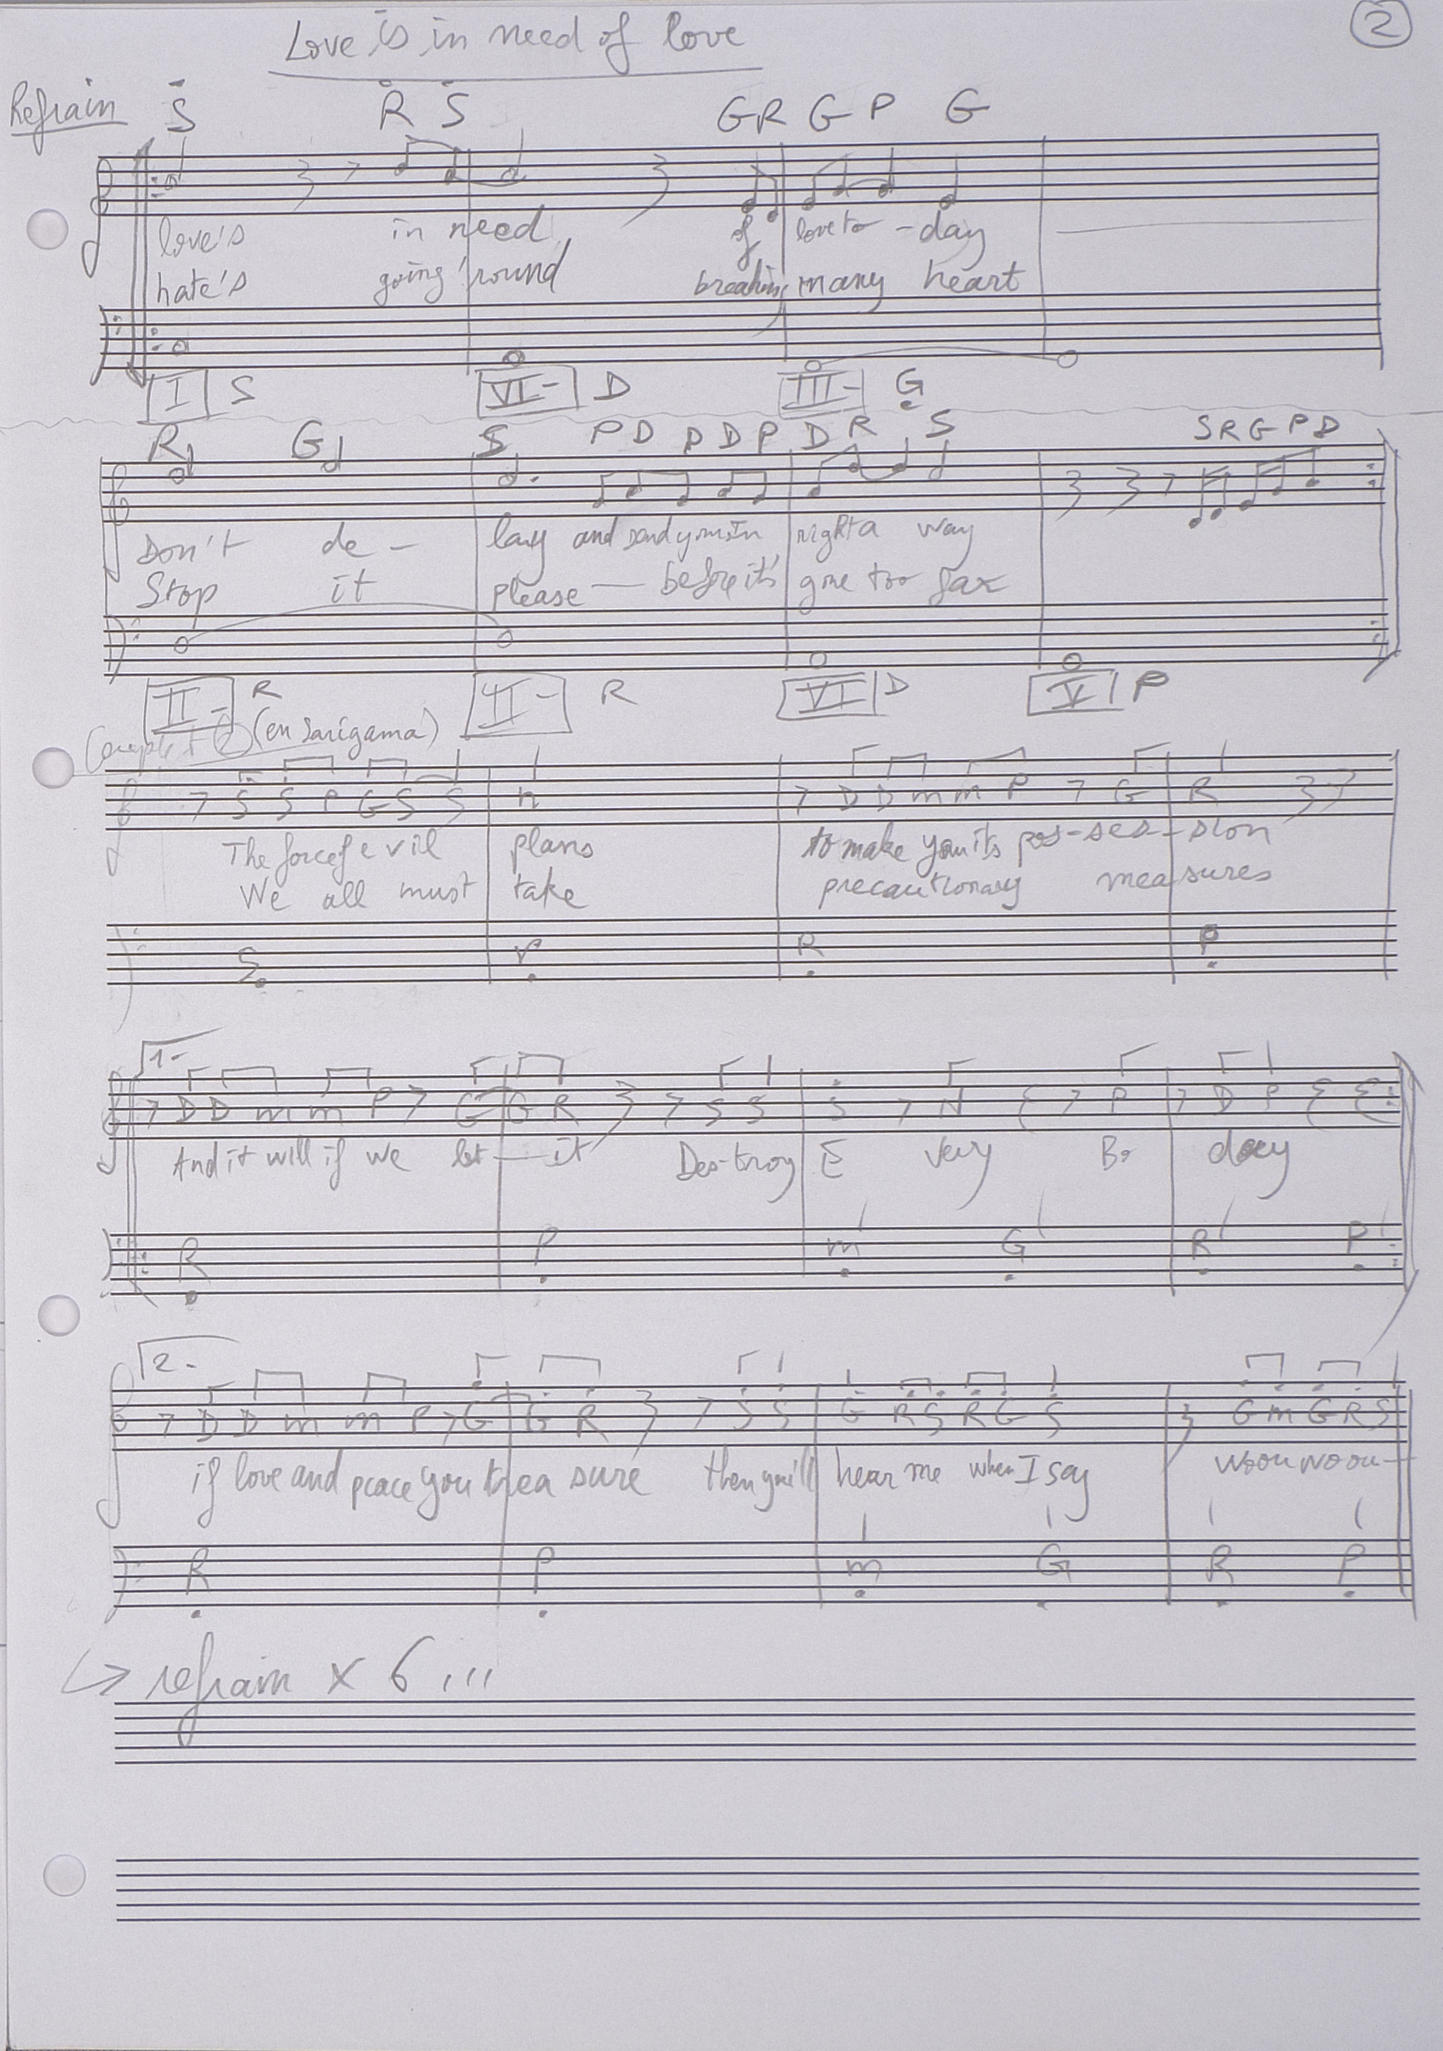 Love is in need of love
2
Refrain S R S G R G P G
love's in need of love to - day
hate's going 'round breaking many heart
I S VI- D III- G
R G S P D D D P D R S S R G P D
Don't de - lay and send yours in right a way
Stop it please — before it's gone too far
II- R II- R VI D V P
Couplet 2 (en Sarigama)
S S P G S S n D D m m P G R
The force of evil plans to make you its pos-ses-sion
We all must take precautionary measures
S P R P
1-
D D m m P G G R S S S N P D P
And it will if we let — it Des-troy E very Bo dy
R P m G R P
2-
D D m m P G G R S S G R S R G S G m G R S
if love and peace you trea sure then you'll hear me when I say woou woou —
R P m G R P
↳ refrain x 6 ...